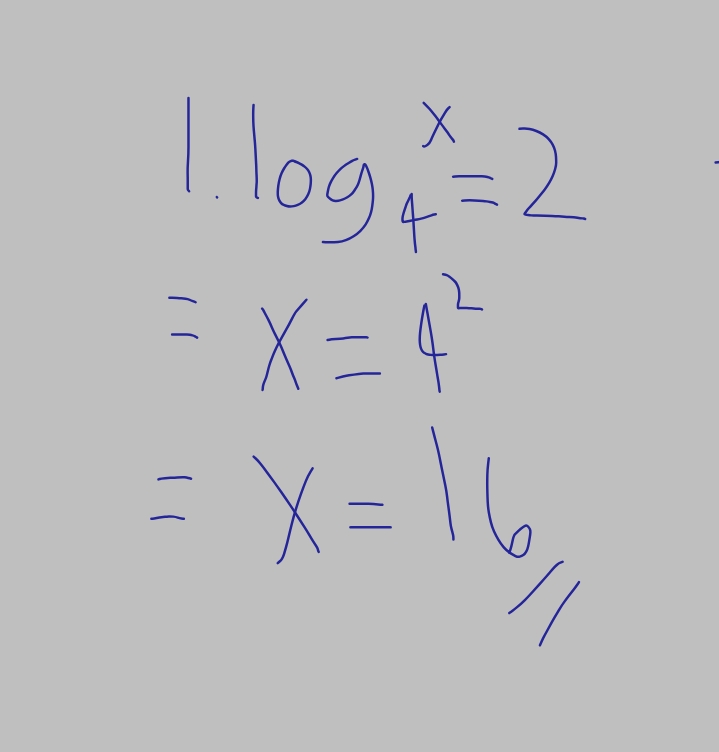 1. log₄ˣ = 2
= x = 4²
= x = 16 //